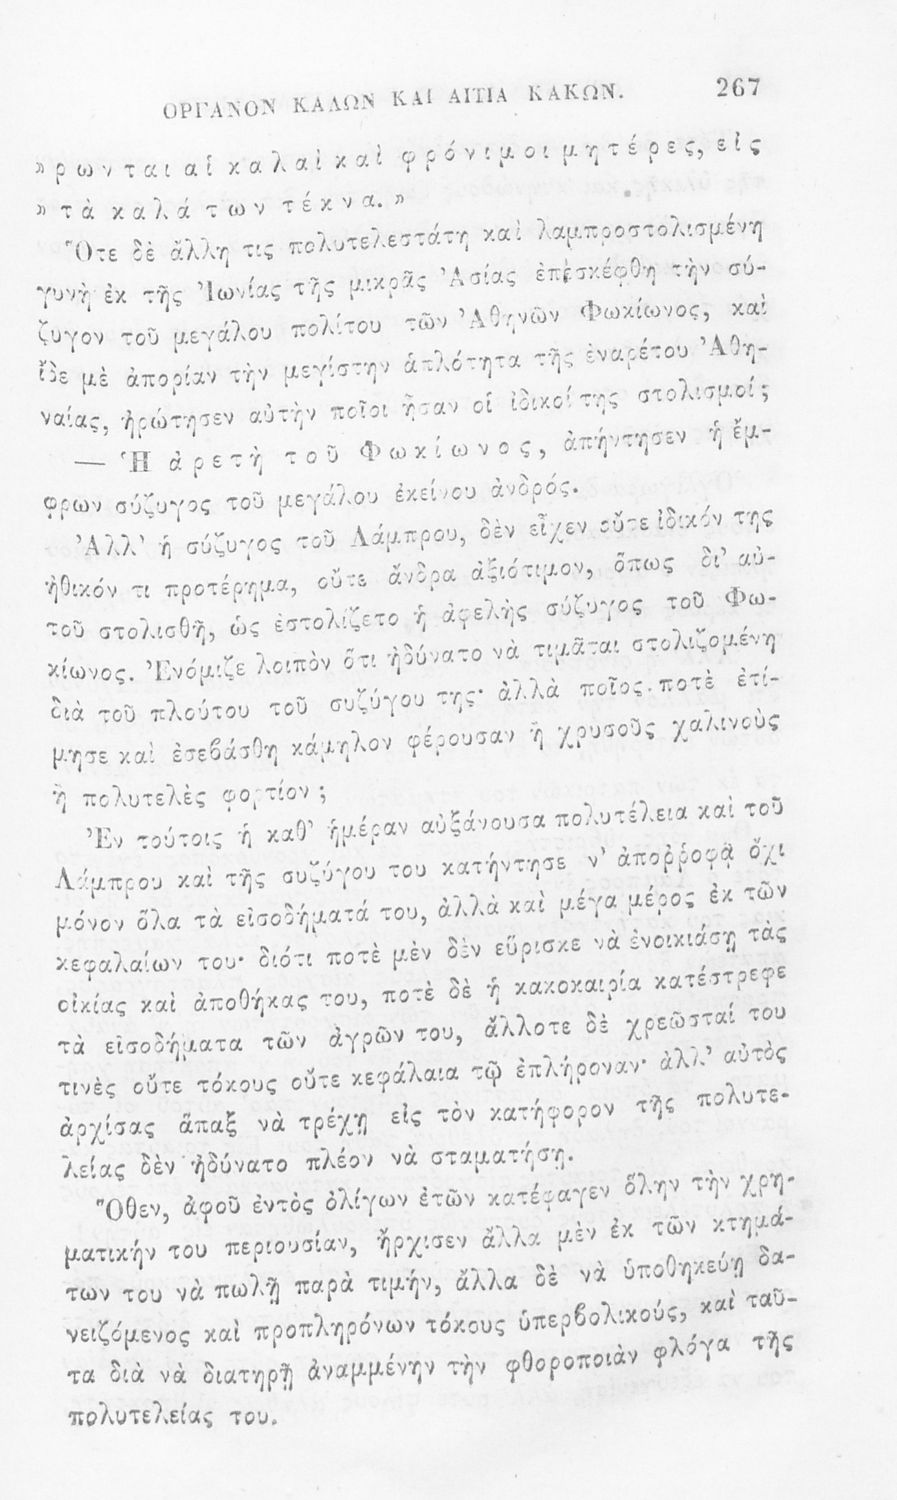 ΟΡΓΑΝΟΝ ΚΑΛΩΝ ΚΑΙ ΑΙΤΙΑ ΚΑΚΩΝ. 267
» ρωνται αἱ καλαὶ καὶ φρόνιμοι μητέρες, εἰς
» τὰ καλά των τέκνα. »
Ὅτε δὲ ἄλλη τις πολυτελεστάτη καὶ λαμπροστολισμένη
γυνὴ ἐκ τῆς Ἰωνίας τῆς μικρᾶς Ἀσίας ἐπεσκέφθη τὴν σύ-
ζυγον τοῦ μεγάλου πολίτου τῶν Ἀθηνῶν Φωκίωνος, καὶ
ἴδε μὲ ἀπορίαν τὴν μεγίστην ἁπλότητα τῆς ἐναρέτου Ἀθη-
ναίας, ἠρώτησεν αὐτὴν ποῖοι ἦσαν οἱ ἰδικοί της στολισμοί;
— Ἡ ἀρετὴ τοῦ Φωκίωνος, ἀπήντησεν ἡ ἔμ-
φρων σύζυγος τοῦ μεγάλου ἐκείνου ἀνδρός.
Ἀλλ' ἡ σύζυγος τοῦ Λάμπρου, δὲν εἶχεν οὔτε ἰδικόν της
ἠθικόν τι προτέρημα, οὔτε ἄνδρα ἀξιότιμον, ὅπως δι' αὐ-
τοῦ στολισθῇ, ὡς ἐστολίζετο ἡ ἀφελὴς σύζυγος τοῦ Φω-
κίωνος. Ἐνόμιζε λοιπὸν ὅτι ἠδύνατο νὰ τιμᾶται στολιζομένη
διὰ τοῦ πλούτου τοῦ συζύγου της· ἀλλὰ ποῖος ποτὲ ἐτί-
μησε καὶ ἐσεβάσθη κάμηλον φέρουσαν ἢ χρυσοῦς χαλινοὺς
ἢ πολυτελὲς φορτίον;
Ἐν τούτοις ἡ καθ' ἡμέραν αὐξάνουσα πολυτέλεια καὶ τοῦ
Λάμπρου καὶ τῆς συζύγου του κατήντησε ν' ἀποῤῥοφᾷ ὄχι
μόνον ὅλα τὰ εἰσοδήματά του, ἀλλὰ καὶ μέγα μέρος ἐκ τῶν
κεφαλαίων του· διότι ποτὲ μὲν δὲν εὕρισκε νὰ ἐνοικιάσῃ τὰς
οἰκίας καὶ ἀποθήκας του, ποτὲ δὲ ἡ κακοκαιρία κατέστρεφε
τὰ εἰσοδήματα τῶν ἀγρῶν του, ἄλλοτε δὲ χρεῶσταί του
τινὲς οὔτε τόκους οὔτε κεφάλαια τῷ ἐπλήροναν· ἀλλ' αὐτὸς
ἀρχίσας ἅπαξ νὰ τρέχῃ εἰς τὸν κατήφορον τῆς πολυτε-
λείας δὲν ἠδύνατο πλέον νὰ σταματήσῃ.
Ὅθεν, ἀφοῦ ἐντὸς ὀλίγων ἐτῶν κατέφαγεν ὅλην τὴν χρη-
ματικήν του περιουσίαν, ἤρχισεν ἄλλα μὲν ἐκ τῶν κτημά-
των του νὰ πωλῇ παρὰ τιμήν, ἄλλα δὲ νὰ ὑποθηκεύῃ δα-
νειζόμενος καὶ προπληρόνων τόκους ὑπερβολικούς, καὶ ταῦ-
τα διὰ νὰ διατηρῇ ἀναμμένην τὴν φθοροποιὰν φλόγα τῆς
πολυτελείας του.